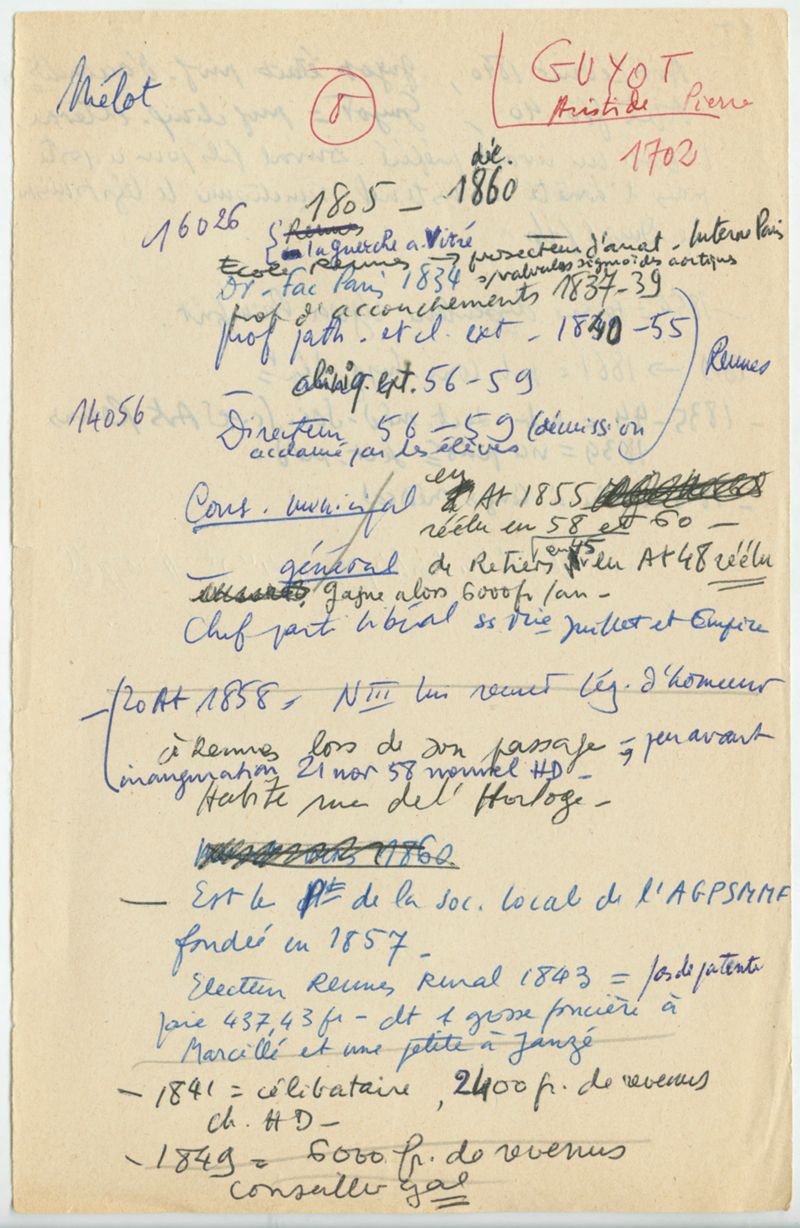 Mélot
GUYOT
Aristide Pierre
1702
déc.
1805 – 1860
16026
Rennes
la guerche a Vitré
Ecole Rennes → prosecteur d'anat - Interne Paris
Dr - Fac Paris 1834 s/valvules sigmoïdes aortiques
prof d'accouchements 1837-39
prof path. et cl. ext - 1840-55
Rennes
– cliniq. ext. 56-59
14056
Directeur 56-59 (démission
acclamé par les élèves
Cons. municipal en At 1855
réélu en 58 et 60 –
– général de Retiers en 45 élu At 48 réélu
gagne alors 6000 fr/an –
Chef parti libéral ss Mie Juillet et Empire
– 20 At 1858 = N III lui remet lég. d'honneur
à Rennes lors de son passage = peu avant
inauguration 21 nov 58 nouvel HD –
Habite rue de l'Horloge –
1860
– Est le Pt de la soc. local de l'AGPSMMF
fondée en 1857 –
Electeur Rennes Rural 1843 = pas de patente
paie 437,43 fr – dt 1 grosse foncière à
Marcillé et une petite à Janzé
– 1841 = célibataire, 2400 fr. de revenus
ch. HD –
– 1849 = 6000 fr. de revenus
conseiller gal